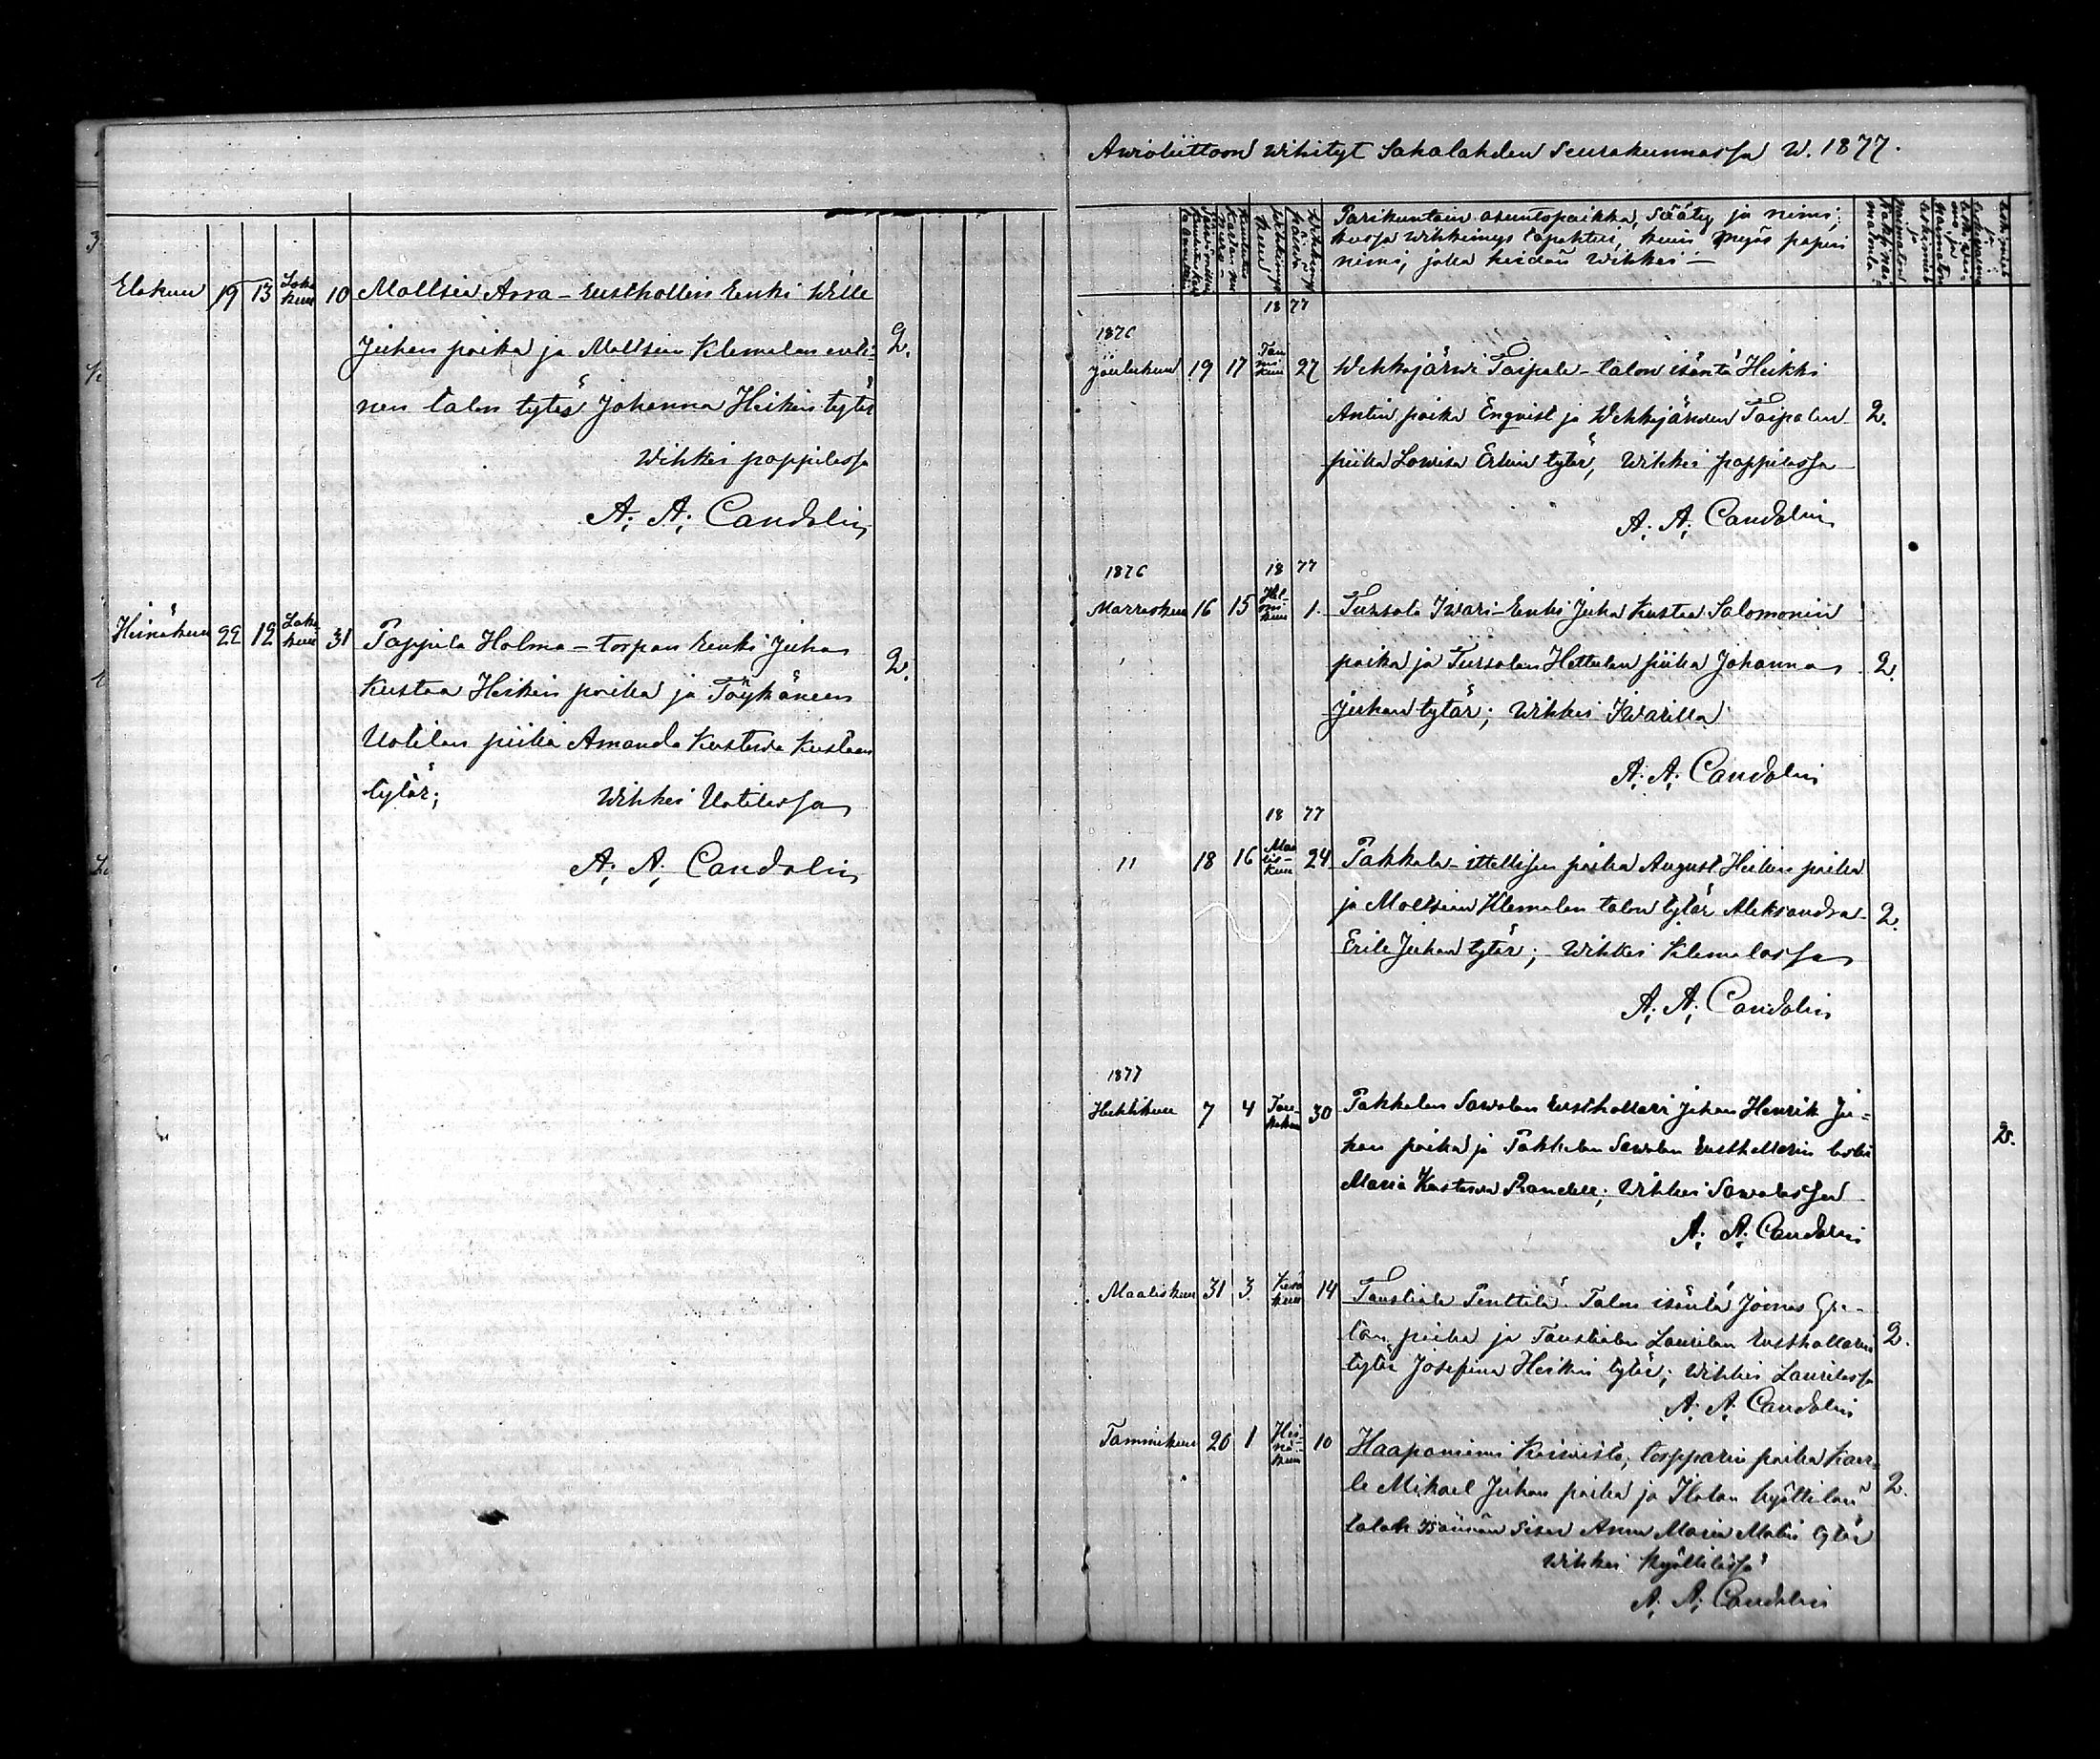 Elokuu 19 13 Loka kuu 10 Moltsia Arra - Rusthollin Renki Wille
Juhan poika ja Moltsian Klemolan enti- 2.
nen talon tytär Johanna Heikin tytär
Wihkei pappilassa
A. A. Candolin
Heinäkuu 22 12 Loka kuu 31 Pappila Holma - torpan Renki Juha
Kustaa Heikin poika ja Töyhänen 2.
Uotilan piika Amanda Kustawa Kustaan
tytär; Wihkei Uotilassa
A. A. Candolin
Awioliittoon Wihityt Sahalahden Seurakunnassa W. 1877.
Pariskuntain asuntopaikka, Sääty ja nimi;
kussa Wihkimys tapahtui, kuin myös papin
nimi, joka heidän Wihkei —
18 77
1876
Joulukuu 19 17 Tam mi kuu 27 Wehkajärwi Taipale - talon isäntä Heikki
Antin poika Enqvist ja Wehkajärwen Taipalen 2.
piika Lowisa Erkin tytär, Wihkei pappilassa
A. A. Candolin
1876 18 77
Marraskuu 16 15 Hel- mi- kuu 1. Tursola Iwari - Renki Juha Kustaa Salomonin
poika ja Tursolan Hettulan piika Johanna 2.
Juhan tytär; Wihkei Iwarilla
A. A. Candolin
18 77
11 18 16 Maa lis- kuu 24 Pakkala - ittellisen poika August Heikin poika
ja Moltsian Klemolan talon tytär Aleksandra 2.
Erika Juhan tytär; Wihkei Klemolassa
A. A. Candolin
1877
Huhtikuu 7 4 Tou- kokuu 30 Pakkalan Sawolan Rusthollari Johan Henrik Ju=
han poika ja Pakkalan Sawolan Rusthollarin leski 2.
Maria Kustawa Randell; Wihkei Sawolassa
A. A. Candolin
Maaliskuu 31 3 Kesä kuu 14 Taustiala Penttilä Talon isäntä Joonas
poika ja Taustialan Laurilan Rusthollarin 2.
tytär Josefina Heikin tytär; Wihkei Laurilassa
A. A. Candolin
Tammikuu 26 1 Hei- nä- kuu 10 Haapaniemi Koiwisto, torpparin poika Kaar-
le Mikael Juhan poika ja Ilolan Kyöttilän 2.
talon isännän sisar Anna Maria Matin tytär
Wihkei Kyöttilässä
A. A. Candolin